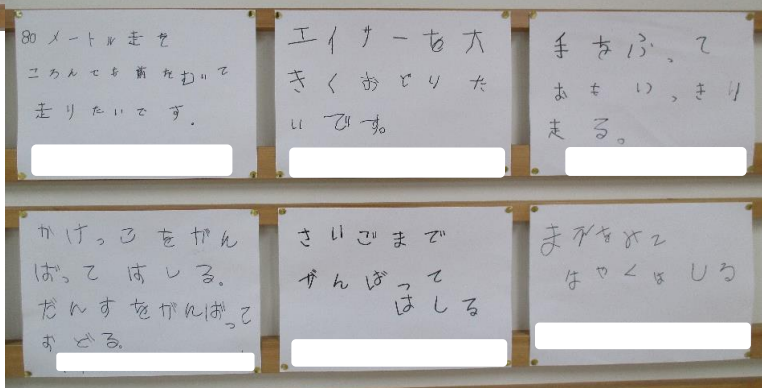 80メートル走を
ころんでも前をむいて
走りたいです.
エイサーを大
きくおどりた
いです。
手をふって
おもいっきり
走る。
かけっこをがん
ばってはしる。
だんすをがんばって
おどる。
さいごまで
がんばって
はしる
まえをみて
はやくはしる